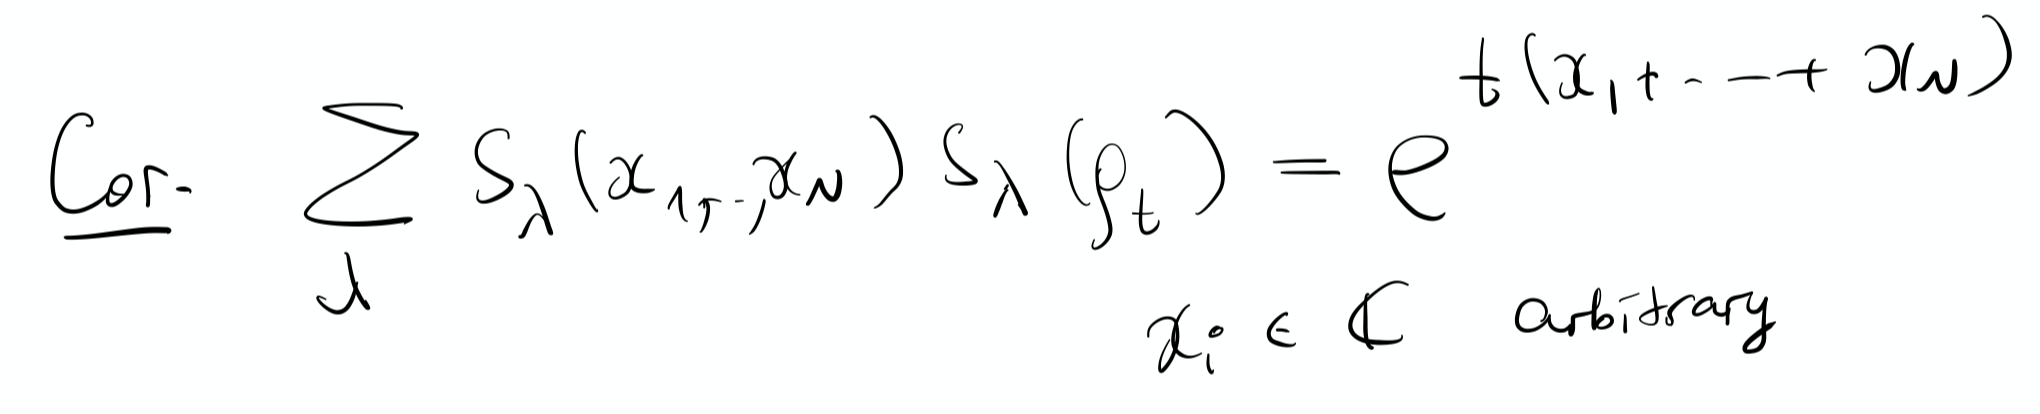 Cor. $\sum_{\lambda} S_\lambda(x_1, .., x_N) S_\lambda(\rho_t) = e^{t(x_1 + \cdots + x_N)}$
$x_i \in \mathbb{C}$ arbitrary